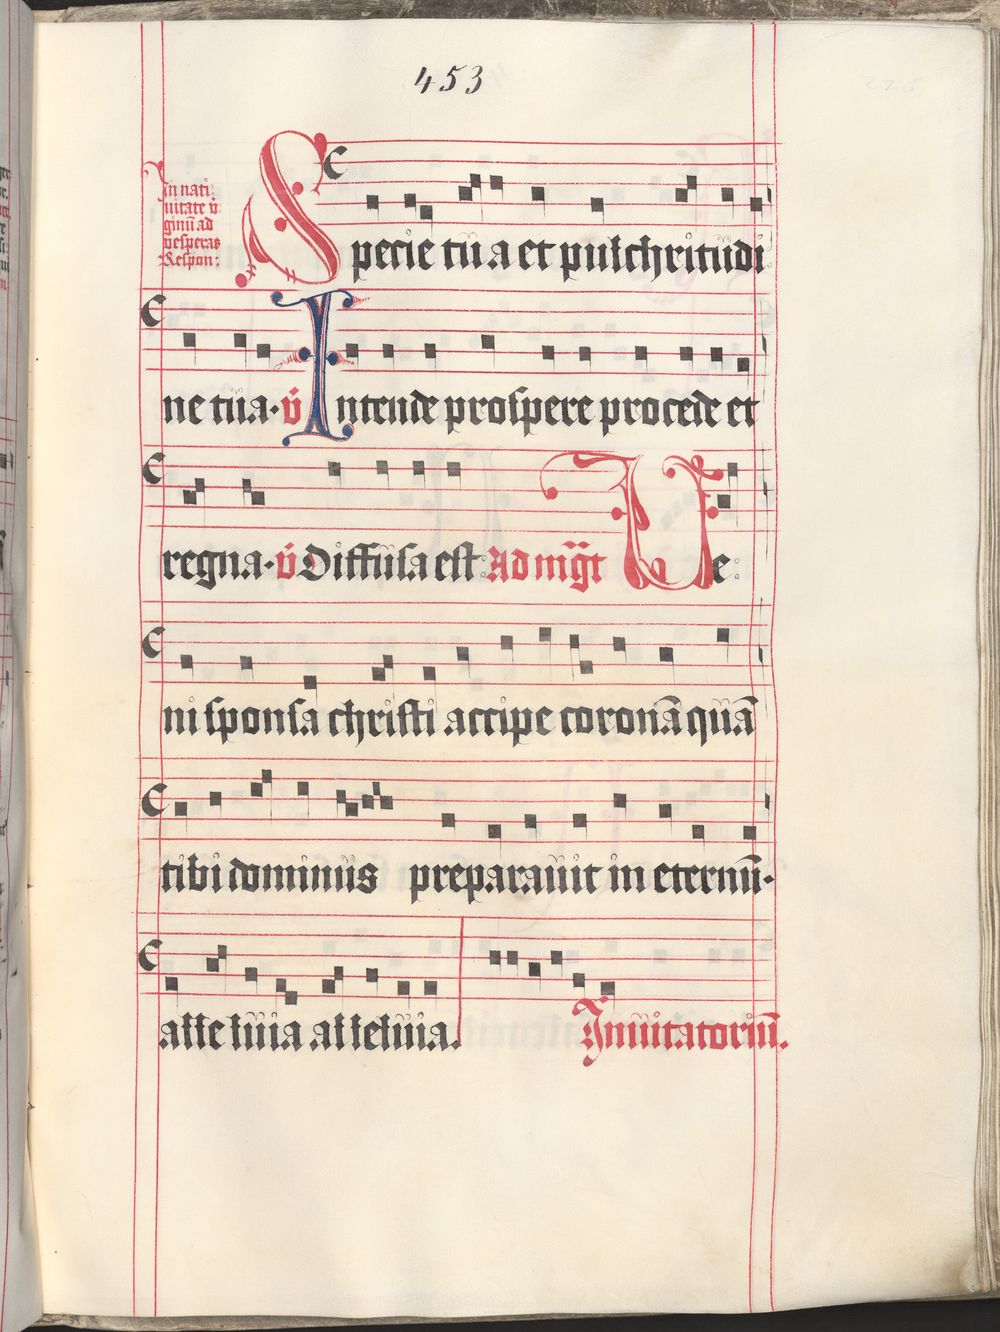 453
226
In nati:
uitate v̄
ginū ad
vesperas
Respon:
Specie tua et pulchritudi
ne tua· v̄ Intende prospere procede et
regna· v̄ Diffusa est: Ad mg̅t Ue:
ni sponsa christi accipe coronā quā
tibi dominus preparauit in eternū·
alleluia alleluia.
Inuitatoriū.